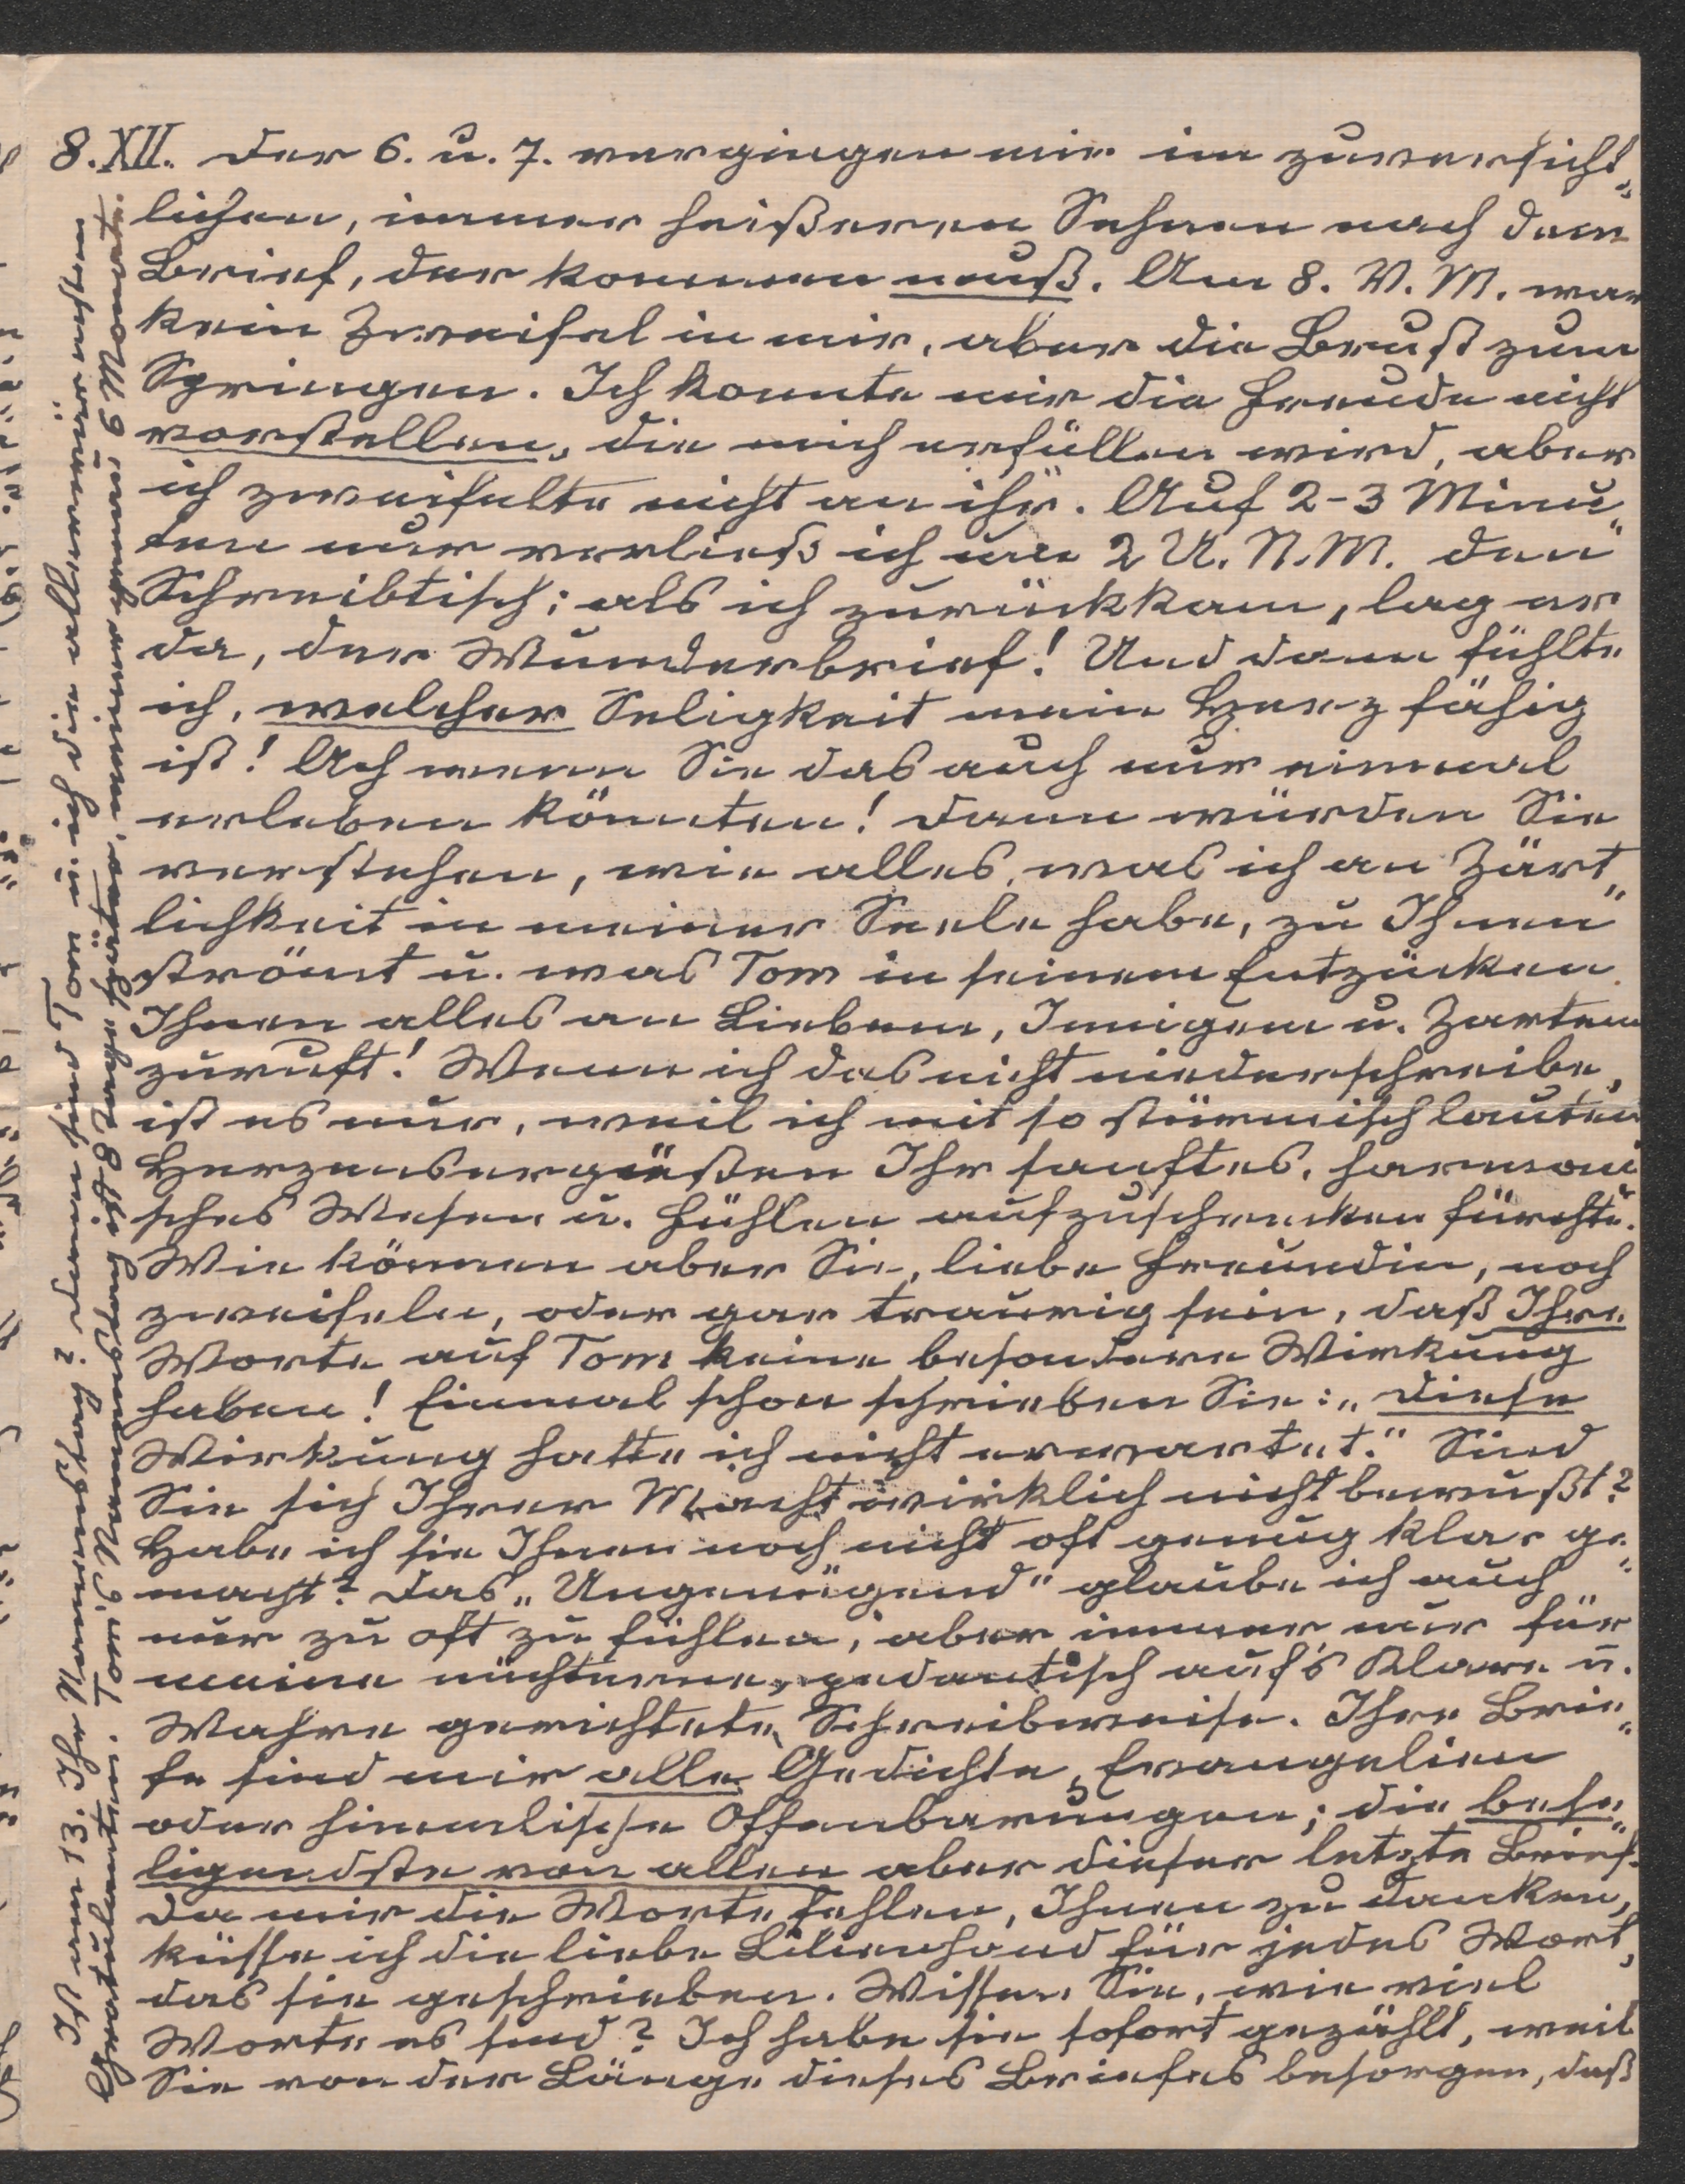 8.XII. Der 6. u. 7. vergingen mir im zuversicht„
lichen, immer heißeren Sehnen nach dem
Brief, der kommen muß. Am 8. V. M. war
kein Zweifel in mir, aber die Brust zum
Springen. Ich konnte mir die Freude nicht
vorstellen, die mich erfüllen wird, aber
ich zweifelte nicht an ihr. Auf 2-3 Minu„
ten nur verließ ich um 2 U. N. M. den
Schreibtisch; als ich zurückkam, lag er
da, der Wunderbrief! Und dann fühlte
ich, welcher Seligkeit mein Herz fähig
ist! Ach wenn Sie das auch nur einmal
erleben könnten! Dann würden Sie
verstehen, wie alles, was ich an Zärt„
lichkeit in meiner Seele habe, zu Ihnen
strömt u. was Tom in seinem Entzücken
Ihnen alles an Liebem, Innigem u. Zartem
zuruft! Wenn ich das nicht niederschreibe,
ist es nur, weil ich mit so stürmisch lauten
Herzensergüßen Ihr sanftes, harmoni„
sches Wesen u. Fühlen aufzuschrecken fürchte.
Wie können aber Sie, liebe Freundin, noch
zweifeln, oder gar traurig sein, daß Ihre
Worte auf Tom keine besondere Wirkung
haben! Einmal schon schrieben Sie: „Diese
Wirkung hatte ich nicht erwartet." Sind
Sie sich Ihrer Macht wirklich nicht bewußt?
Habe ich sie Ihnen noch nicht oft genug klar ge„
macht? Das „Ungenügend" glaube ich auch
nur zu oft zu fühlen, aber immer nur für
meine nüchterne, pedantisch auf's Klare u.
Wahre gerichtete Schreibweise. Ihre Brie„
fe sind mir alle Gedichte, Evangelien
oder himmlische Offenbarungen; die bese„
ligendste von allen aber dieser letzte Brief.
Da mir die Worte fehlen, Ihnen zu danken,
küsse ich die liebe Lilienhand für jedes Wort,
das sie geschrieben. Wissen Sie, wie viel
Worte es sind? Ich habe sie sofort gezählt, weil
Sie von der Länge dieses Briefes besorgen, daß